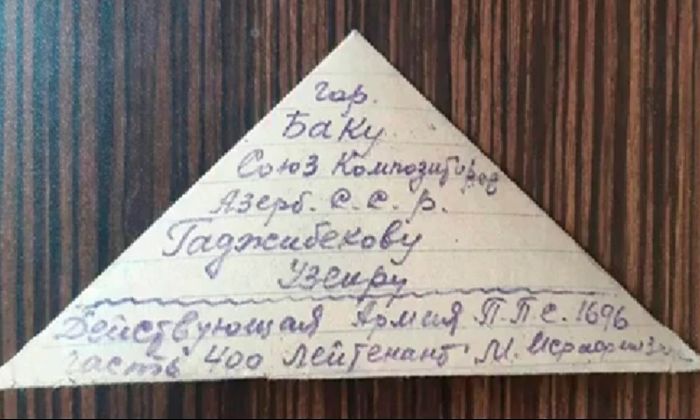 гор.
Баку.
Союз Композитиров
Азерб. С. С. Р.
Гаджибекову
Узеиру
Действующая Армия П П С. 1696
часть 400 лейтенант М.